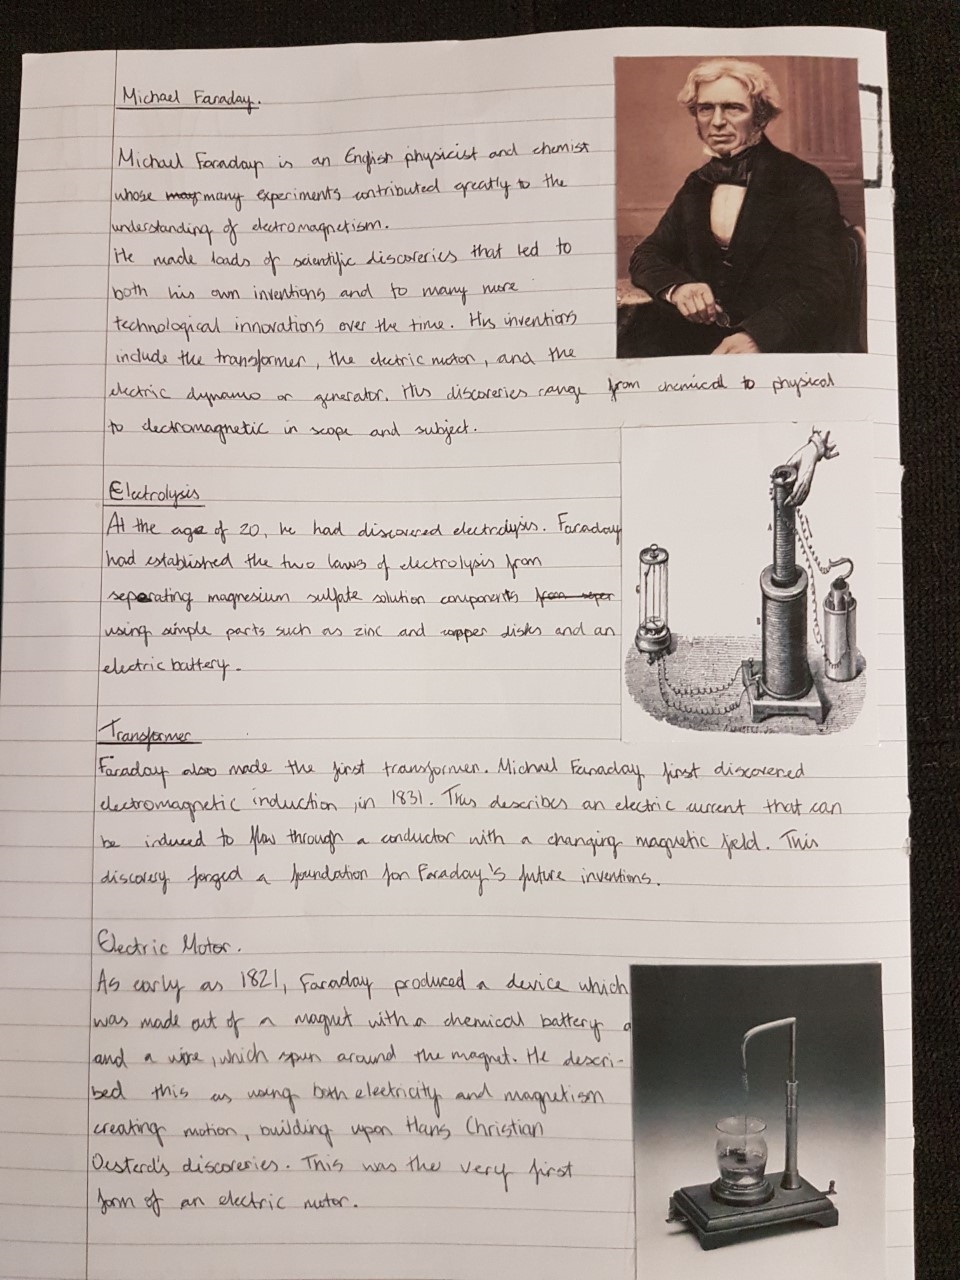 Michael Faraday.
Michael Faraday is an English physicist and chemist
whose may many experiments contributed greatly to the
understanding of electromagnetism.
He made loads of scientific discoveries that led to
both his own inventions and to many more
technological innovations over the time. His inventions
include the transformer, the electric motor, and the
electric dynamo or generator. His discoveries range from chemical to physical
to electromagnetic in scope and subject.
Electrolysis
At the age of 20, he had discovered electrolysis. Faraday
had established the two laws of electrolysis from
seperating magnesium sulfate solution components from seper
using simple parts such as zinc and copper disks and an
electric battery.
Transformer
Faraday also made the first transformer. Michael Faraday first discovered
electromagnetic induction in 1831. This describes an electric current that can
be induced to flow through a conductor with a changing magnetic field. This
discovery forged a foundation for Faraday's future inventions.
Electric Motor.
As early as 1821, Faraday produced a device which
was made out of a magnet with a chemical battery a
and a wire, which spun around the magnet. He descri-
bed this as using both electricity and magnetism
creating motion, building upon Hans Christian
Oesterd's discoveries. This was the very first
form of an electric motor.